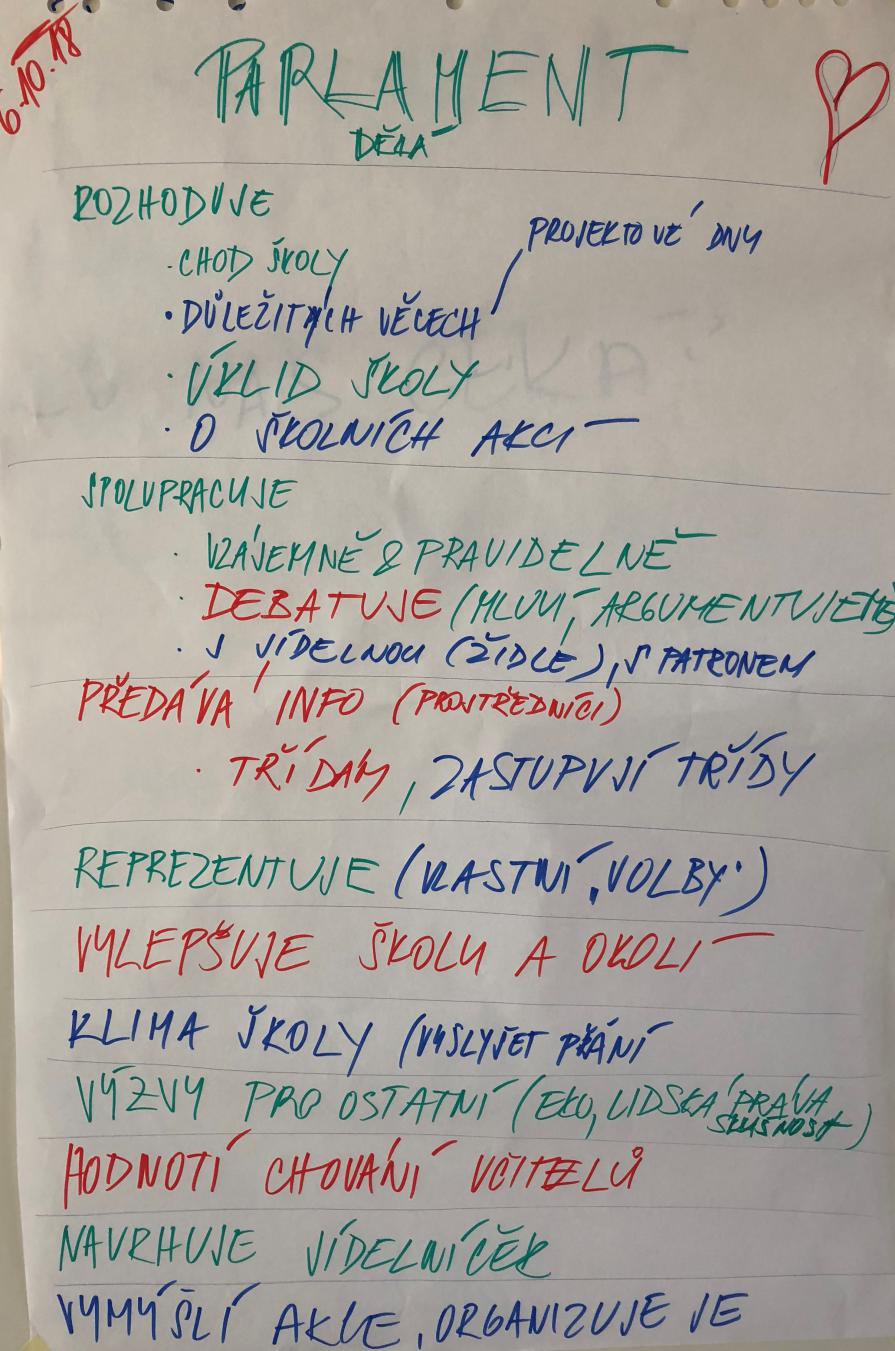 6.10.18
PARLAMENT
DĚLÁ
ROZHODUJE
PROJEKTOVÉ DNY
· CHOD ŠKOLY
· DŮLEŽITÝCH VĚCECH
· ÚKLID ŠKOLY
· O ŠKOLNÍCH AKCÍ
SPOLUPRACUJE
· VZÁJEMNĚ & PRAVIDELNĚ
· DEBATUJE (MLUVÍ, ARGUMENTUJEME)
· S JÍDELNOU (ŽIDLE), S PATRONEM
PŘEDÁVÁ INFO (PROSTŘEDNÍCI)
· TŘÍDÁM, ZASTUPUJÍ TŘÍDY
REPREZENTUJE (VLASTNÍ, VOLBY·)
VYLEPŠUJE ŠKOLU A OKOLÍ
KLIMA ŠKOLY (VYSLYŠET PŘÁNÍ
VÝZVY PRO OSTATNÍ (EKO, LIDSKÁ PRÁVA
SLUŠNOST)
HODNOTÍ CHOVÁNÍ UČITELŮ
NAVRHUJE JÍDELNÍČEK
VYMÝŠLÍ AKCE, ORGANIZUJE JE